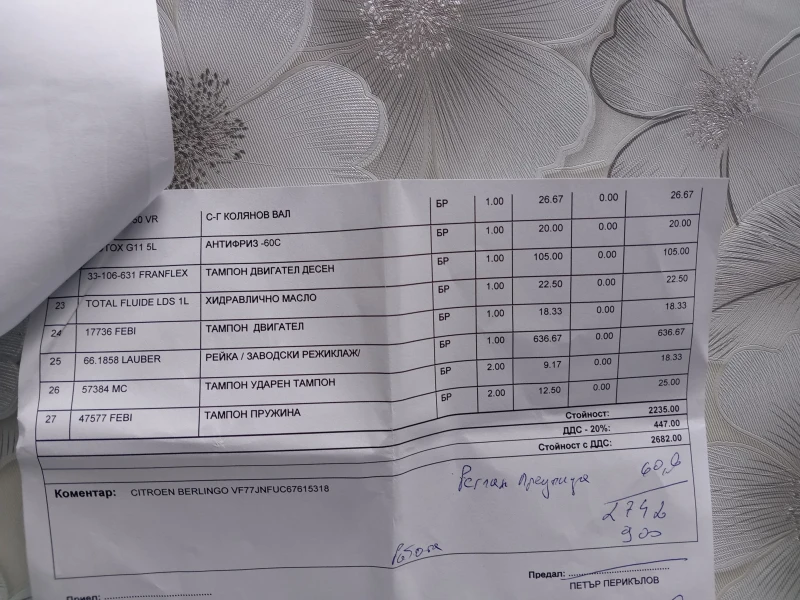 50 VR С-Г КОЛЯНОВ ВАЛ БР 1.00 26.67 0.00 26.67
TOX G11 5L АНТИФРИЗ -60С БР 1.00 20.00 0.00 20.00
33-106-631 FRANFLEX ТАМПОН ДВИГАТЕЛ ДЕСЕН БР 1.00 105.00 0.00 105.00
23 TOTAL FLUIDE LDS 1L ХИДРАВЛИЧНО МАСЛО БР 1.00 22.50 0.00 22.50
24 17736 FEBI ТАМПОН ДВИГАТЕЛ БР 1.00 18.33 0.00 18.33
25 66.1858 LAUBER РЕЙКА / ЗАВОДСКИ РЕЖИКЛАЖ/ БР 1.00 636.67 0.00 636.67
26 57384 MC ТАМПОН УДАРЕН ТАМПОН БР 2.00 9.17 0.00 18.33
27 47577 FEBI ТАМПОН ПРУЖИНА БР 2.00 12.50 0.00 25.00
Стойност: 2235.00
ДДС - 20%: 447.00
Стойност с ДДС: 2682.00
Коментар: CITROEN BERLINGO VF77JNFUC67615318
60,0
2742
900
Работа
Предал:
ПЕТЪР ПЕРИКЪЛОВ
Приел: